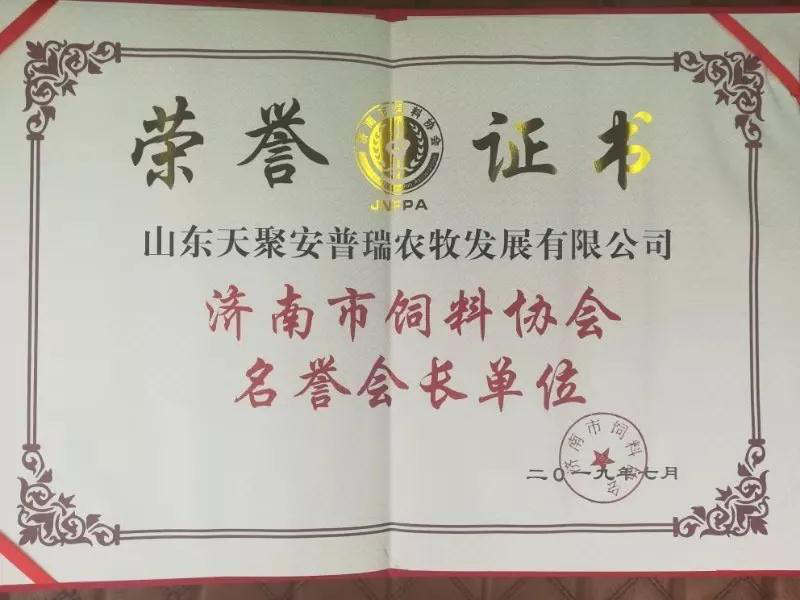 荣誉证书
济南市饲料协会
JNFPA
山东天聚安普瑞农牧发展有限公司
济南市饲料协会
名誉会长单位
济南市饲料协会
二〇一九年七月